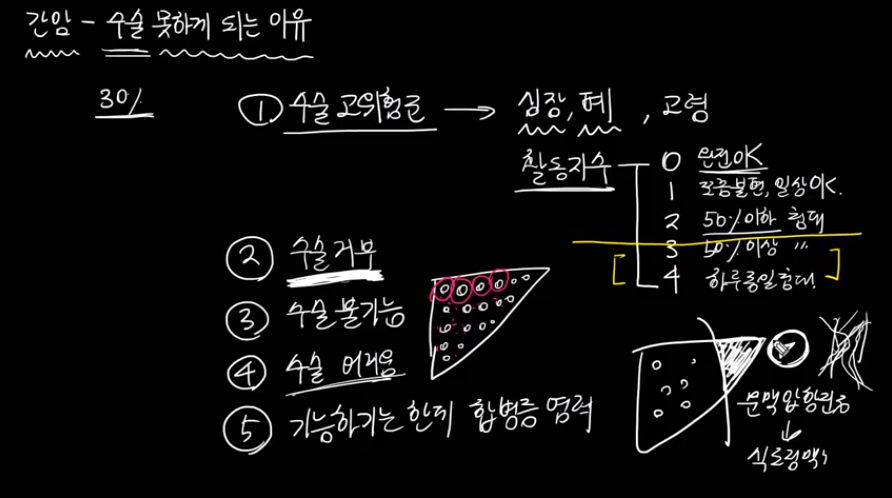 간암 - 수술 못하게 되는 이유
30%
① 수술 고위험군 → 심장, 폐, 고령
활동지수
0 완전OK
1 조금불편, 일상OK.
2 50%이하 침대
3 50%이상 〃
4 하루종일침대.
② 수술거부
③ 수술 불가능
④ 수술 어려움
⑤ 가능하기는 한데 합병증 염려
문맥압항진증
↓
식도정맥